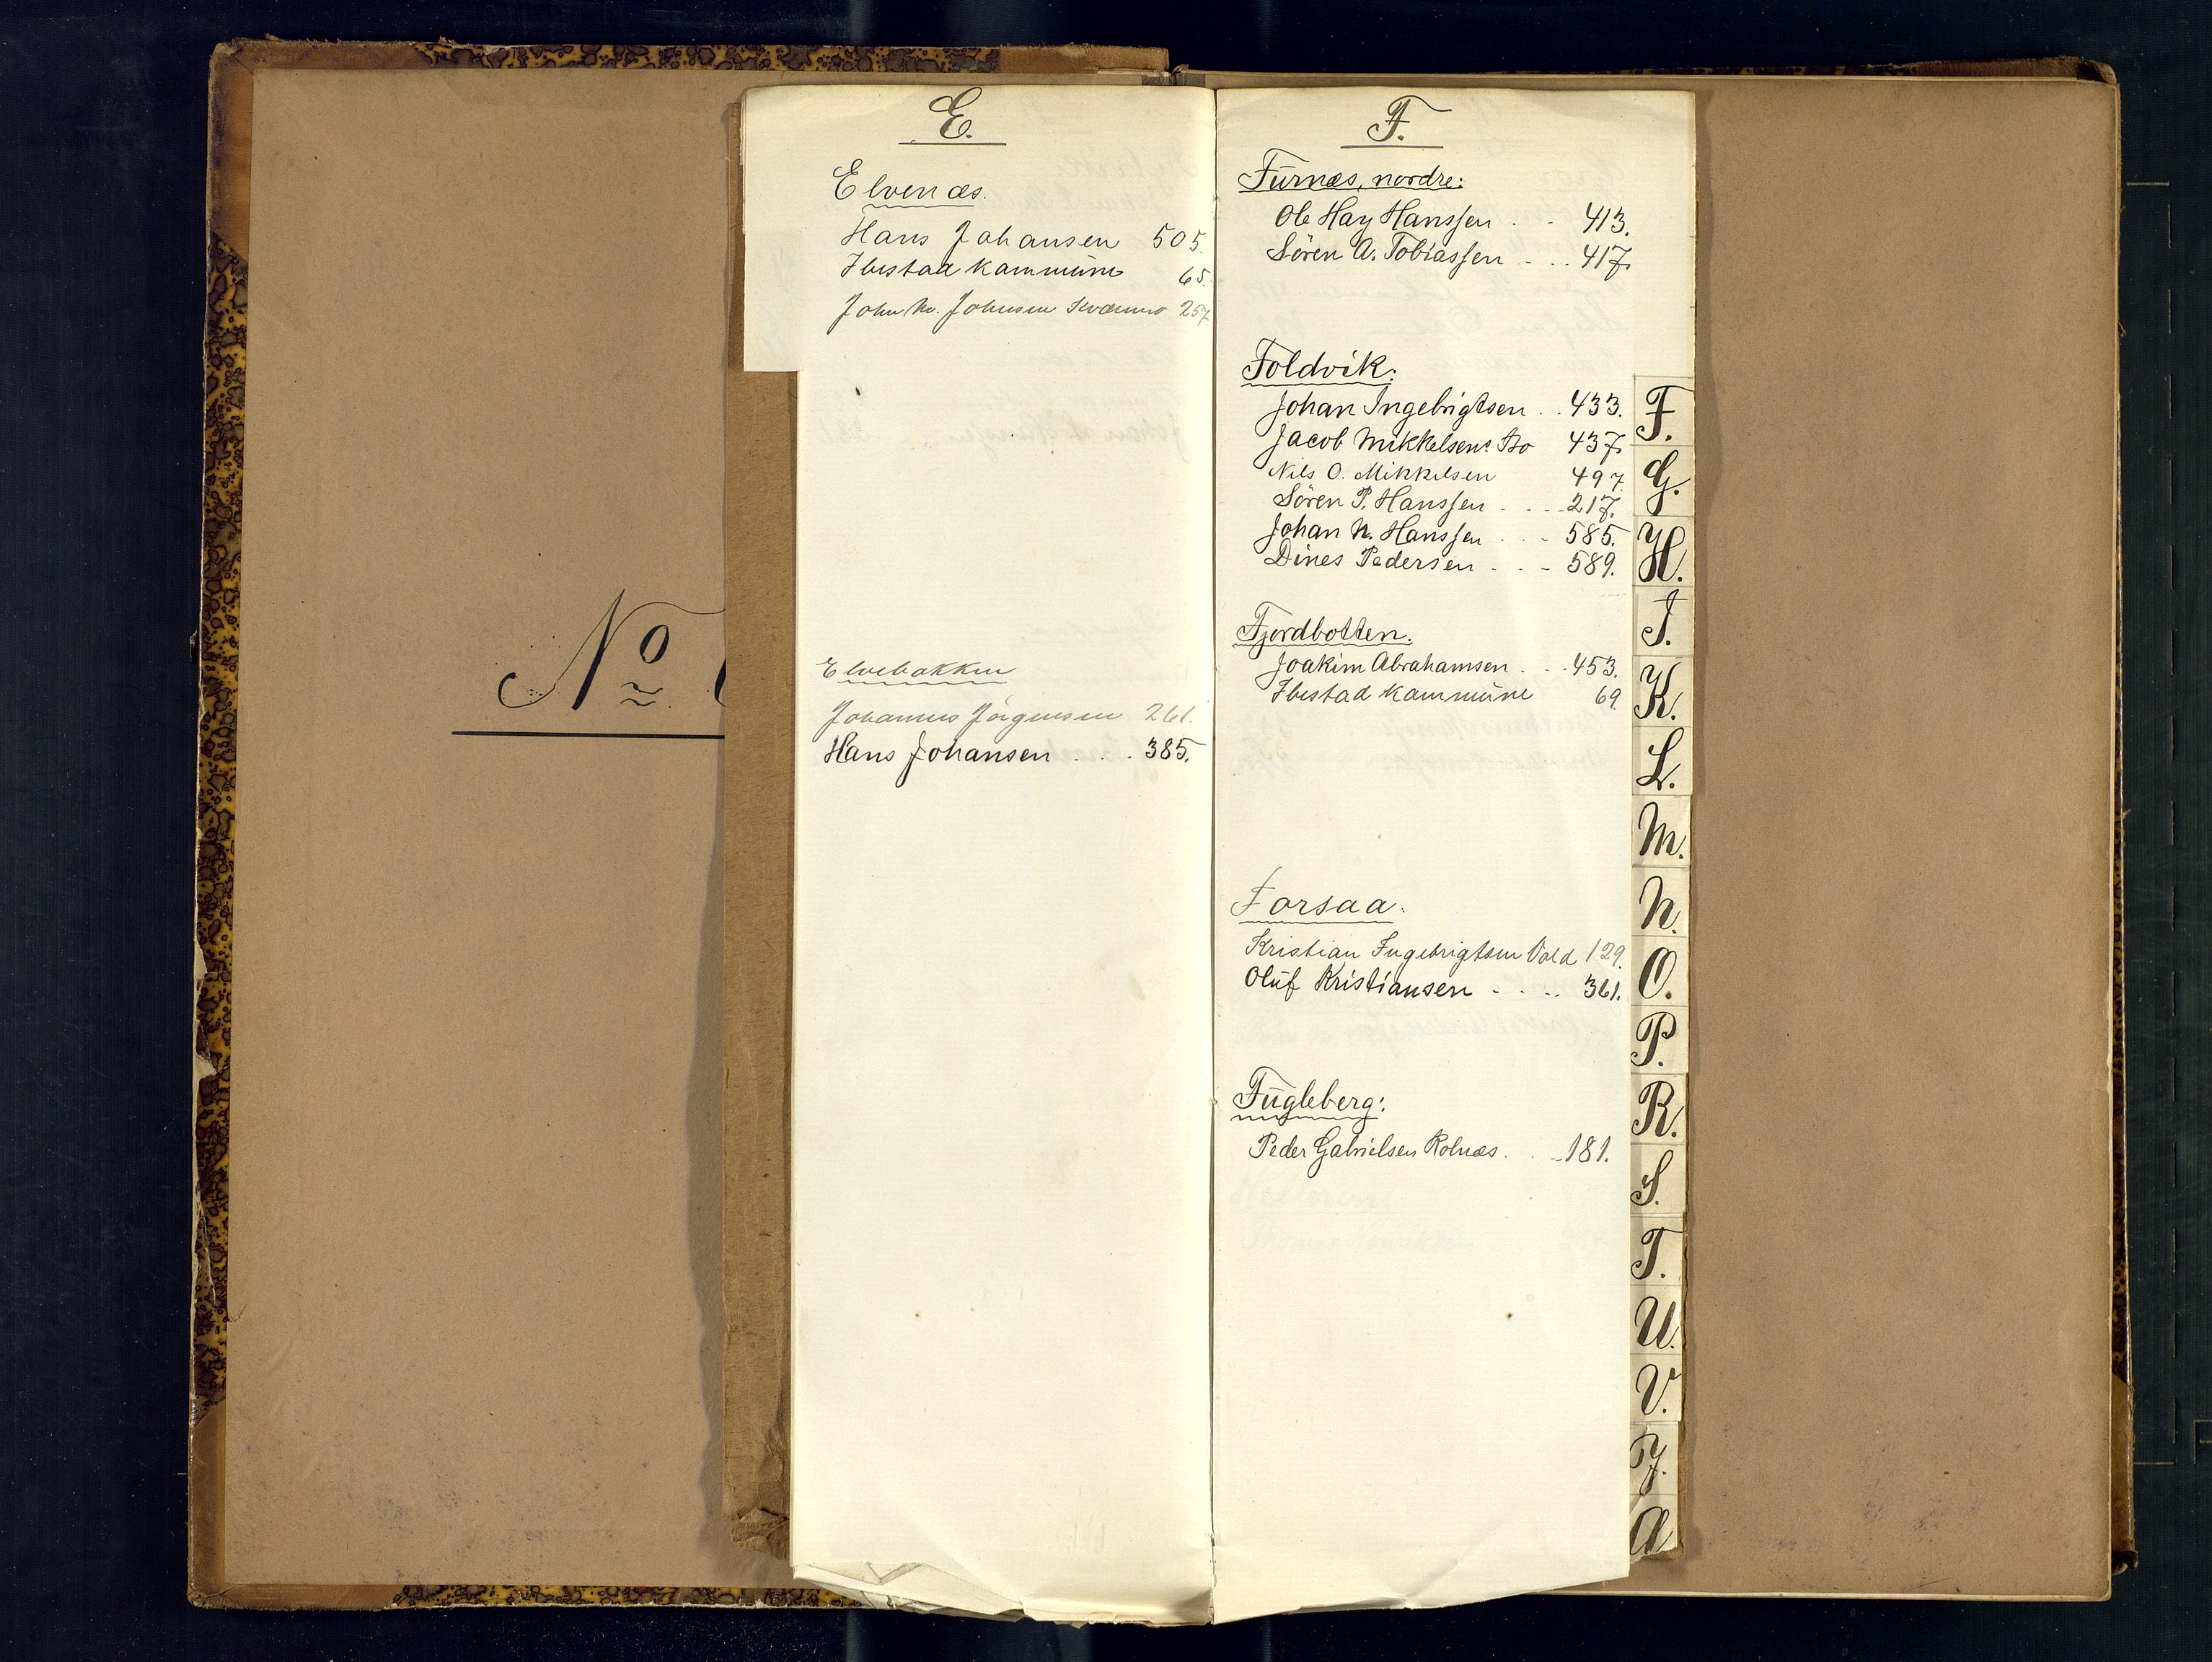 No
E.
Elvenæs.
Hans Johansen 505.
Ibestad kommune 65.
John M. Johnsen Kværnmo 257
Elvebakken
Johannes Jörgensen 261.
Hans Johansen . . . 385.
F.
Furnæs, nordre:
Ole Hay Hanssen . . 413.
Sören A. Tobiassen . . . 417.
Foldvik:
Johan Ingebrigtsen . . 433.
Jacob Mikkelsens Bo 437.
Nils O. Mikkelsen 497.
Sören P. Hanssen . . . 217.
Johan N. Hanssen . . 585.
Dines Pedersen . . . 589.
Fjordbotten:
Joakim Abrahamsen . . . 453.
Ibestad kommune 69.
Forsaa:
Kristian Ingebrigtsen Vold 129.
Oluf Kristiansen . . . . 361.
Fugleberg:
Peder Gabrielsen Rolnæs . . . 181.
F.
G.
H.
I.
K.
L.
M.
N.
O.
P.
R.
S.
T.
U.
V.